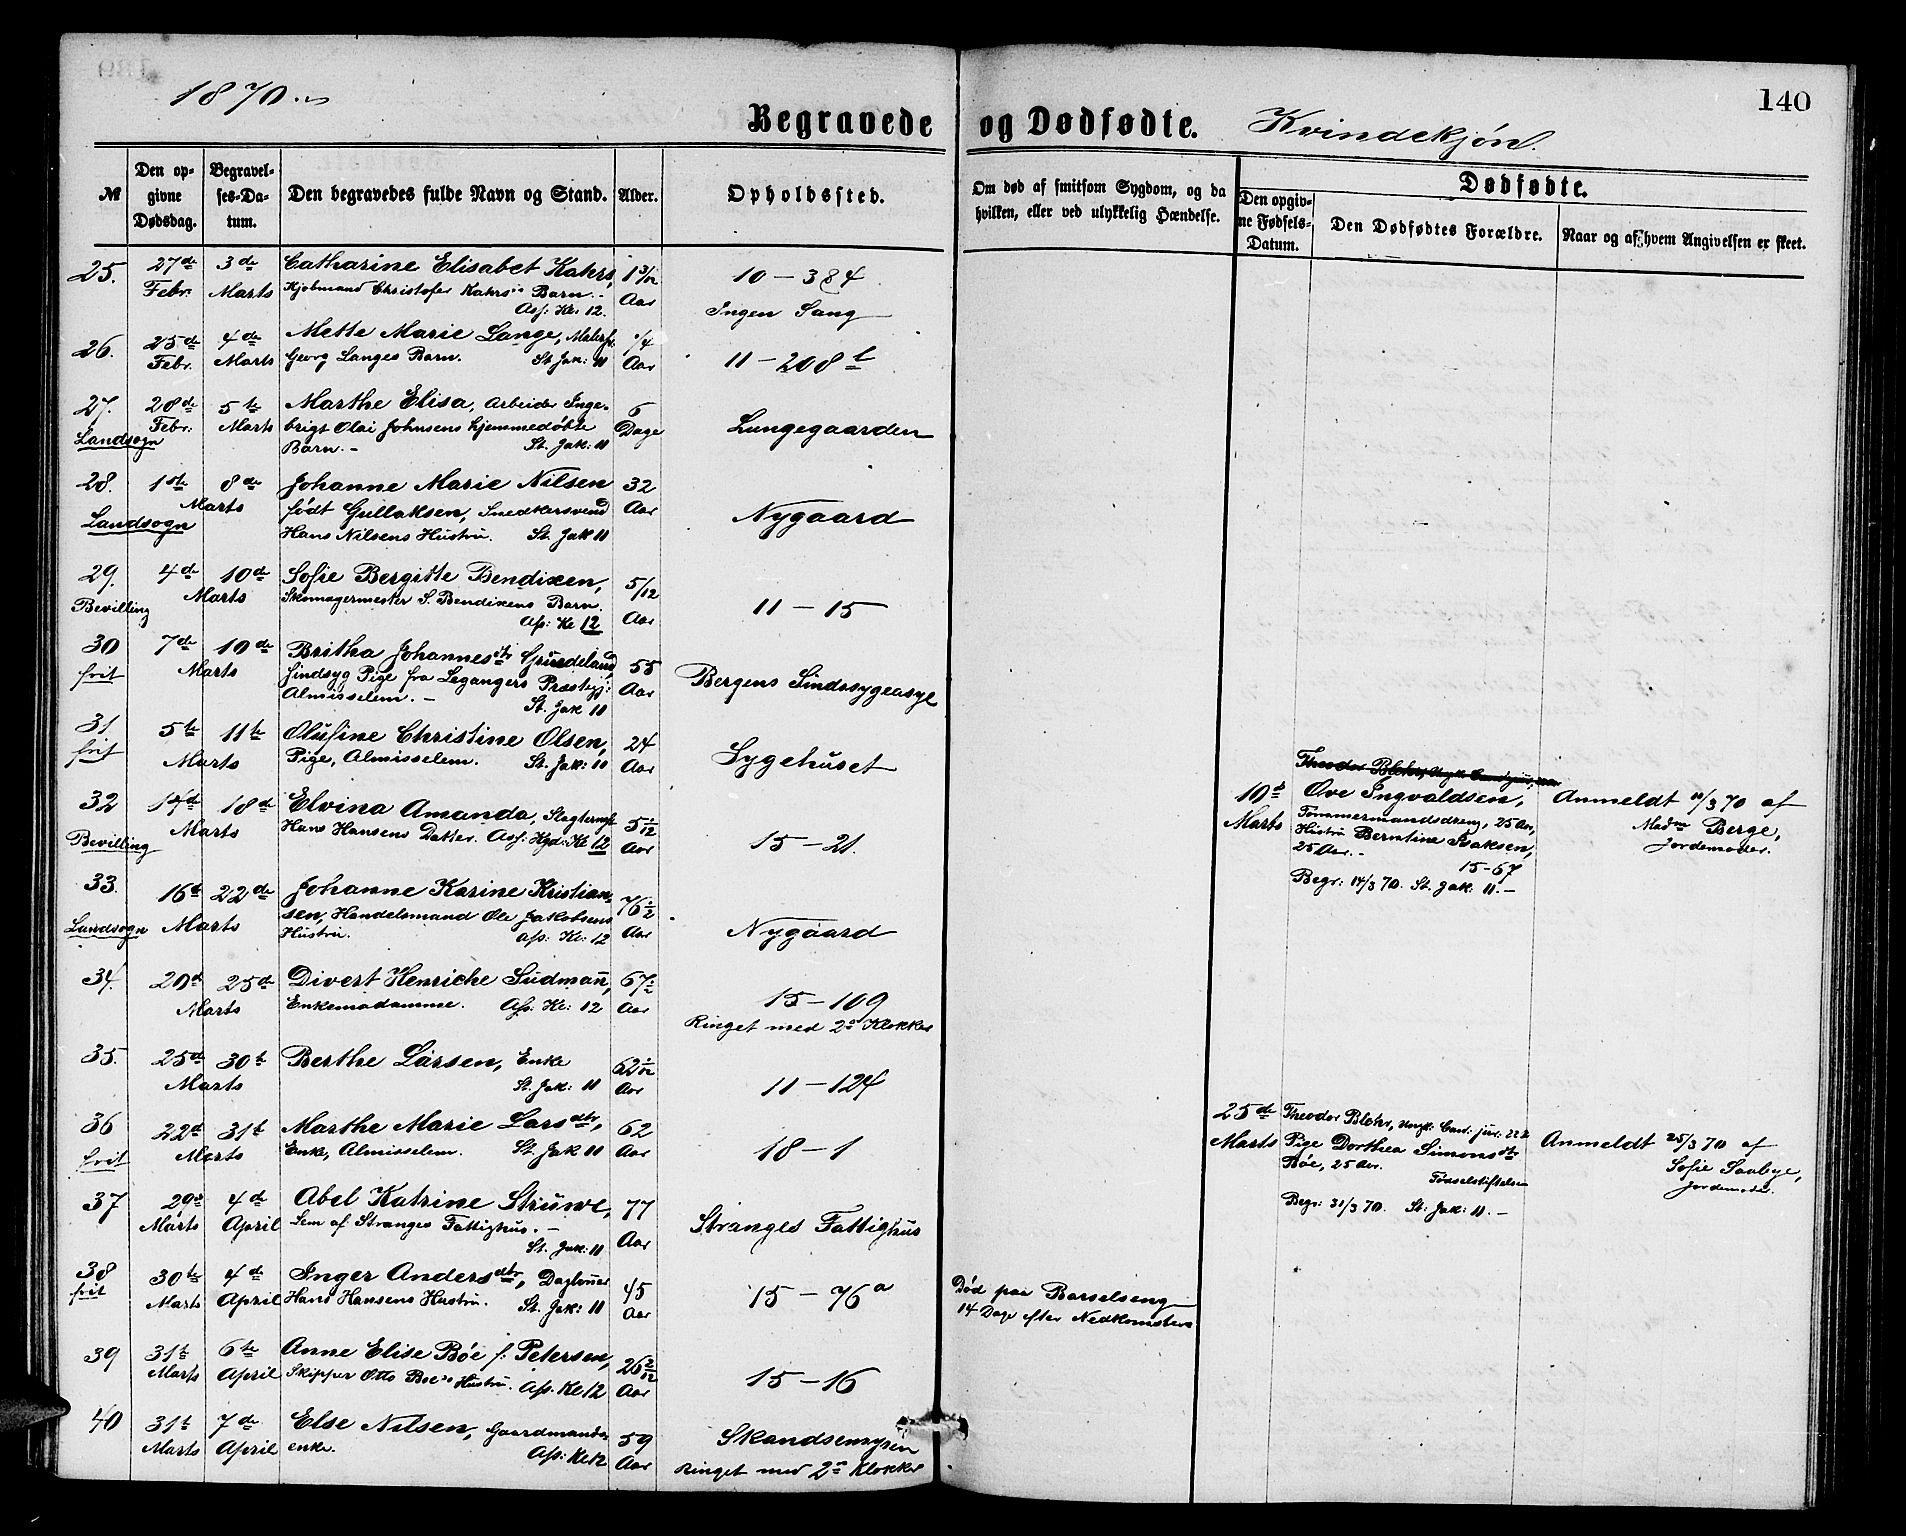 1870.
Begravede og Dødfødte. Kvindekjøn.
140
№
Den opgivne Dødsdag.
Begravelses-Datum.
Den begravedes fulde Navn og Stand.
Alder.
Opholdssted.
Om død af smitsom Sygdom, og da hvilken, eller ved ulykkelig Hændelse.
Dødfødte.
Den opgivne Fødsels-Datum.
Den Dødfødtes Forældre.
Naar og af hvem Angivelsen er skeet.
25. 27de Febr. 3de Marts Catharine Elisabet Kahrs, 1 3/12 Aar 10 – 384
Kjøbmand Christofer Kahrs's Barn. –
Ass. Kl: 12. Ingen Sang
26. 25de Febr. 4de Marts Mette Marie Lange, 1/4 Aar 11 – 208 b
Georg Langes Barn. St. Jak: 11
27. 28de Febr: 5te Marts Marthe Elisa, Arbeider Inge- 6 Dage Lungegaarden
Landsogn brigt Olai Johnsens hjemmedøbte
Barn. – St. Jak: 11
28. 1ste 8de Marts Johanne Marie Nilsen 32 Aar Nygaard
Landsogn født Gullaksen, Snedkersvend
Hans Nilsens Hustru. St. Jak 11
29. 4de 10de Marts Sofie Bergitte Bendixen, 5/12 Aar 11 – 15
Bevilling Skomagermester S. Bendixens Barn.
Ass: Kl 12
30 7de 10de Marts Britha Johannesdtr 55 Aar Bergens Sindssygeasyl
frit sindsyg Pige fra Leganger Præstegj:
Almisselem. – St. Jak 11
31 5te 11te Marts Olufine Christine Olsen, 24 Aar Sygehuset
frit Pige, Almisselem. St. Jak: 11
32 14de 18de Marts Elvina Amanda, Slagtermst 5 1/12 Aar 15 – 21.
Bevilling Hans Hansens Datter. Ass: Kl 12
33. 16de 22de Marts Johanne Karine Kristian- 76 1/2 Aar Nygaard
Landsogn sen, Handelsmand Ole Jakobsens
Hustru. Ass: Kl: 12
34. 20de 25de Marts Divert Henriche Sudmann, Aar 15 – 109
Enkemadamme. Ass: Kl: 12 Ringet med 2de Klokker
35. 25de 30te Marts Berthe Larsen, Enke Aar 11 – 124
St. Jak: 11
36 22de 31te Marts Marthe Marie Larsdtr, 62 Aar 18 – 1
frit Enke, Almisselem. St. Jak 11
37 29de Marts 4de April Abel Katrine Struwe, 77 Aar Stranges Fattighus
Lem af Stranges Fattighus. –
St. Jak: 11
38 30te Marts 4de April Inger Andersdtr, Daglønner 45 Aar 15 – 76 a Død paa Barselseng
frit Hans Hansens Hustru. St. Jak: 11 14 Dage efter Nedkomsten
39 31te Marts 6te April Anne Elise Bøe f. Petersen, 26 2/12 Aar 15 – 16
Skipper Otto Bøe's Hustru. Ass. Kl 12
40 31te Marts 7de April Else Nilsen, Gaardmands- 59 Aar Skandsemyren
enke. Ass: Kl 12 Ringet med 2de Klokker
Theodor Blehr,
10de Marts Ove Ingvaldsen, Anmeldt 11/3 70 af
Tømmermandsdreng, 25 Aar, Madm Berge,
Hustru Berntine Isaksen, Jordemoder.
25 Aar. – 15-67
Begr: 14/3 70. St. Jak: 11. –
25de Marts Theodor Blehr, Cand: jur: Anmeldt 25/3 70 af
Pige Dorthea Simonsdtr Sofie Saabye,
Bøe, 25 Aar. Jordemoder.
Fødselstiftelsen
Begr: 31/3 70. St. Jak: 11. –